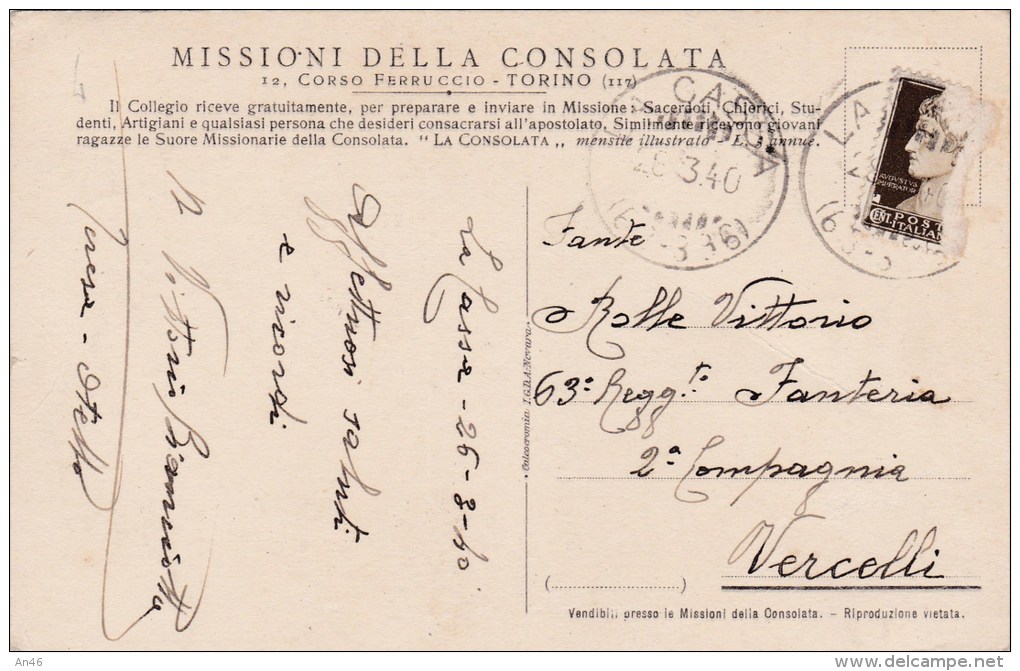 MISSIONI DELLA CONSOLATA
12, CORSO FERRUCCIO - TORINO (117)
Il Collegio riceve gratuitamente, per preparare e inviare in Missione: Sacerdoti, Chierici, Stu-
denti, Artigiani e qualsiasi persona che desideri consacrarsi all'apostolato. Similmente ricevono giovani
ragazze le Suore Missionarie della Consolata. "LA CONSOLATA„ mensile illustrato - L. 3 annue.
LA CASSA
28 3.40
(63-336)
LA
28
(63-3
AUGUSTVS
IMPERATOR
CENT. POST
ITALIAN
La Cassa - 26-3-40
Affettuosi saluti
e ricordi
Vittorio
Teresa -
Calcocromia I.G.D.A. Novara
Fante
Rolle Vittorio
63º Regg.to Fanteria
2ª Compagnia
Vercelli
(                )
Vendibili presso le Missioni della Consolata. - Riproduzione vietata.
An46
delcampe.net